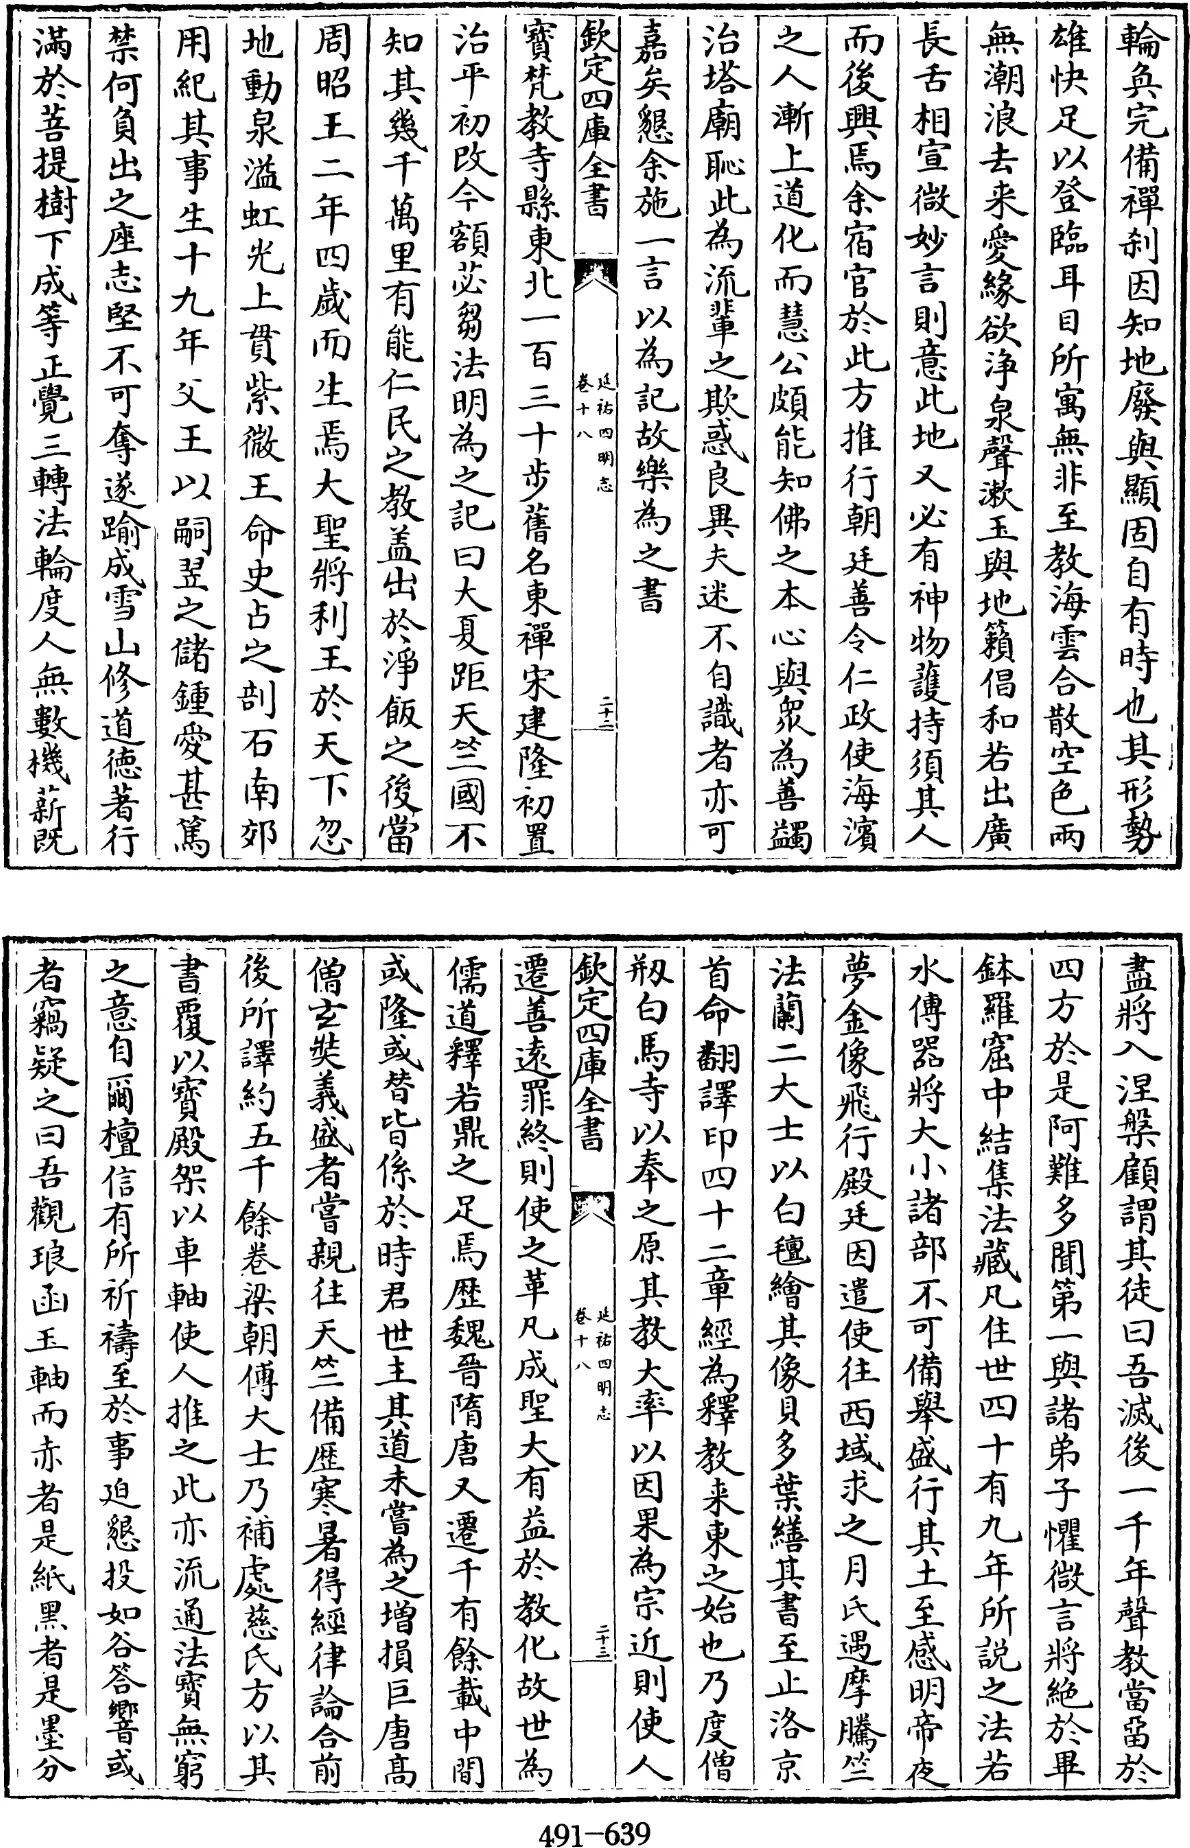 輪奐完備禪刹因知地廢與顯固自有時也其形勢
雄快足以登臨耳目所寓無非至教海雲合散空色兩
無潮浪去来愛緣欲浄泉聲漱玉與地籟倡和若出廣
長舌相宣微妙言則意此地又必有神物䕶持須其人
而後興焉余宿官於此方推行朝廷善令仁政使海濱
之人漸上道化而慧公頗能知佛之本心與衆為善蠲
治塔廟恥此為流輩之欺惑良異夫迷不自識者亦可
嘉矣懇余施一言以為記故樂為之書
欽定四庫全書
延祐四明志
卷十八
二十二
寶梵教寺縣東北一百三十步舊名東禪宋建隆初置
治平初改今額苾芻法明為之記曰大夏距天竺國不
知其幾千萬里有能仁民之教盖出於淨飯之後當
周昭王二年四歲而生焉大聖將利王於天下忽
地動泉溢虹光上貫紫微王命史占之剖石南郊
用紀其事生十九年父王以嗣翌之儲鍾愛甚篤
禁何負出之座志堅不可奪遂踰成雪山修道德著行
滿於菩提樹下成等正覺三轉法輪度人無數機薪既
盡將入涅槃顧謂其徒曰吾滅後一千年聲教當畱於
四方於是阿難多聞第一與諸弟子懼微言將絶於畢
鉢羅窟中結集法藏凡住世四十有九年所説之法若
水傳器將大小諸部不可備舉盛行其土至感明帝夜
夢金像飛行殿廷因遣使往西域求之月氏遇摩騰竺
法蘭二大士以白氊繪其像貝多葉繕其書至止洛京
首命翻譯印四十二章經為釋教来東之始也乃度僧
剏白馬寺以奉之原其教大率以因果為宗近則使人
欽定四庫全書
延祐四明志
卷十八
二十三
遷善逺罪終則使之革凡成聖大有益於教化故世為
儒道釋若鼎之足焉歴魏晉隋唐又遷千有餘載中間
或隆或替皆係於時君世主其道未嘗為之增損巨唐髙
僧玄奘義盛者嘗親往天竺備歴寒暑得經律論合前
後所譯約五千餘卷梁朝傅大士乃補處慈氏方以其
書覆以寶殿架以車軸使人推之此亦流通法寶無窮
之意自爾檀信有所祈禱至於事迫懇投如谷答響或
者竊疑之曰吾觀琅函玉軸而赤者是紙黑者是墨分
491-639